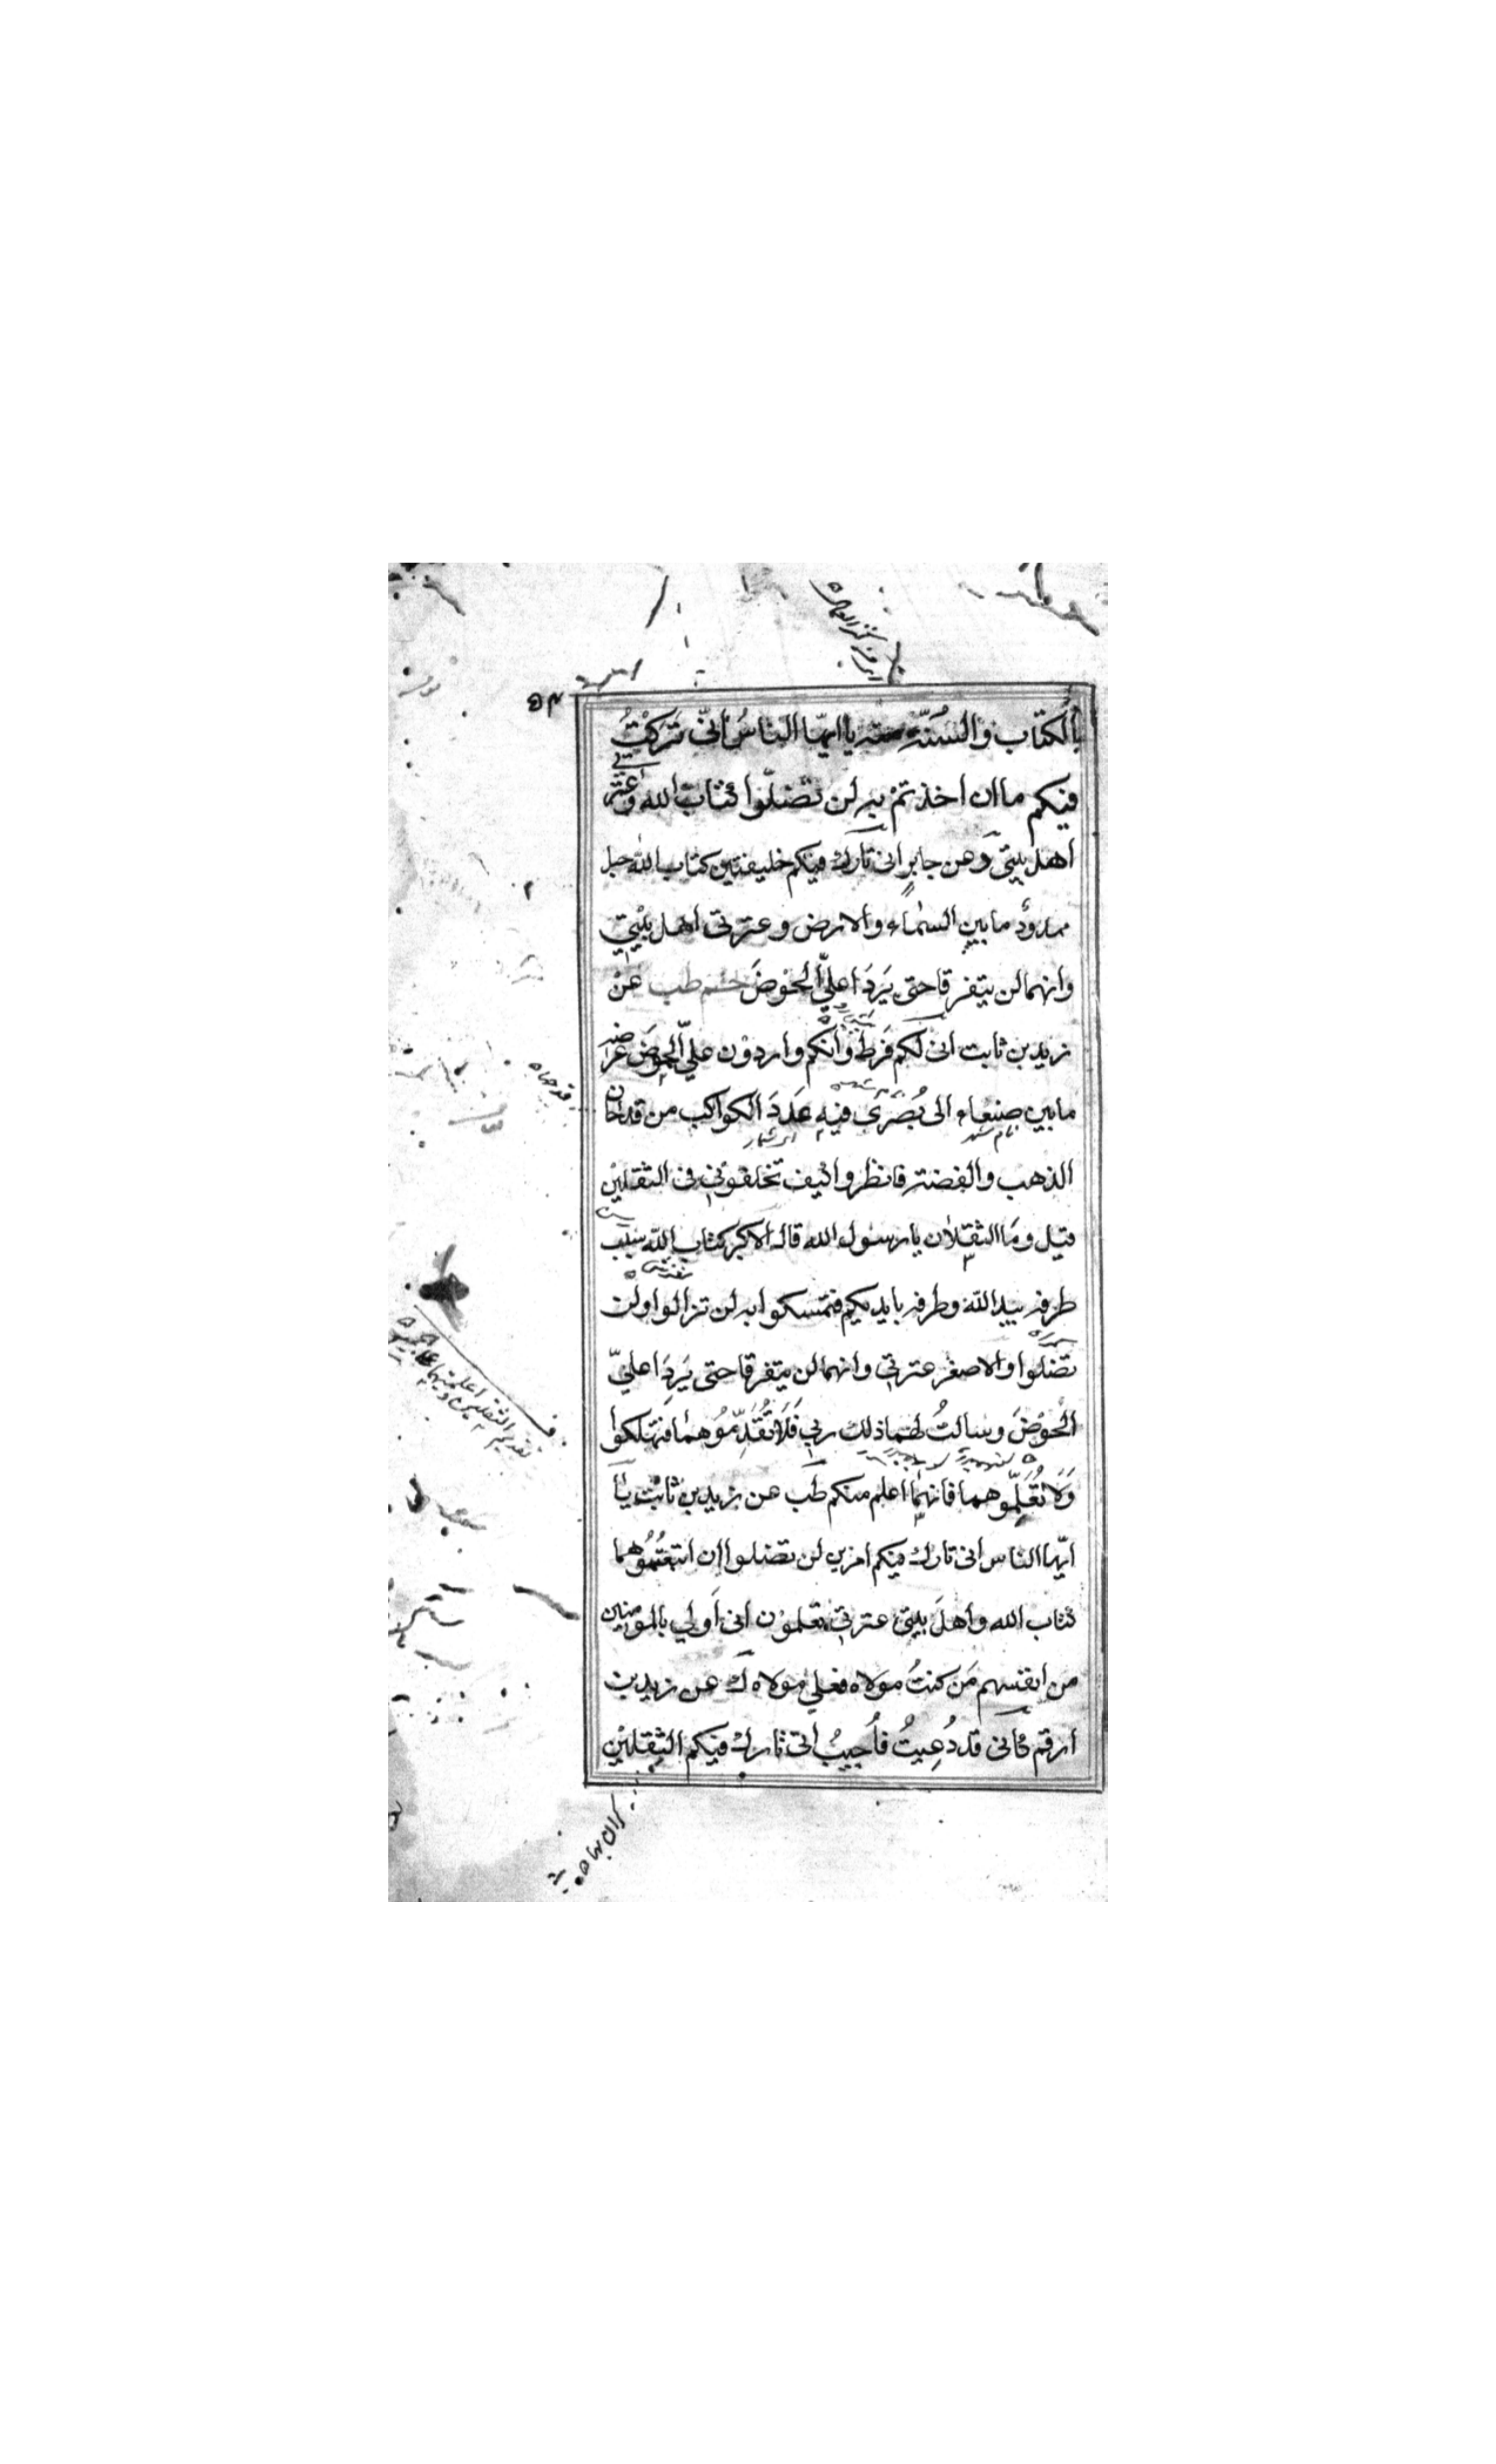 از کنز العمال
۵۴
بالكتاب والسُنّة يا ايّها الناسُ انّى تَرَكْتُ
فيكم ما ان اخذتمْ به لن تضلّوا كتابَ الله وعترتي
اهل بيتى وعن جابرٍ انى تارك فيكم خليفتين كتاب الله حبل
ممدودٌ ما بين السماء والارض وعترتى اهل بيتي
وانهما لن يتفرقا حتى يَرِدَا عليّ الحوْضَ حم طب عنْ
زيد بن ثابت انى لكم فَرَطٌ وانّكم واردوْن عليّ الحوضَ عرضه
ما بين صنعاء الى بُصْرَى فيهِ عَدَدَ الكواكب من قدحان
الذهب والفضة فانظروا كيف تخلفونى فى الثقلين
قيل وما الثقلان يا رسول الله قال الاكبر كتاب الله سبب
طرفه بيد الله وطرفه بايديكم فتمسكوا به لن تزالوا ولن
تضلوا والاصغر عترتي وانهما لن يتفرقا حتى يَرِدَا عليّ
الحوْضَ وسالتُ لهما ذلك ربي فَلَا تُقَدِّمُوهما فتهلكوا
وَلَا تُعَلِّموهما فانهما اعلم منكم طب عن زيد بن ثابت يا
ايّها الناس انى تارك فيكم امرين لن تضلوا ان اتبعتُمُوْهما
كتاب الله واهلَ بيتى عترتي تعلمون انى اَولي بالمومنين
من انفسهم مَن كنتُ مولاه فعلي مولاه ك عن زيد بن
ارقم كانى قد دُعِيتُ فاُجيبُ انى تارك فيكم الثقلين